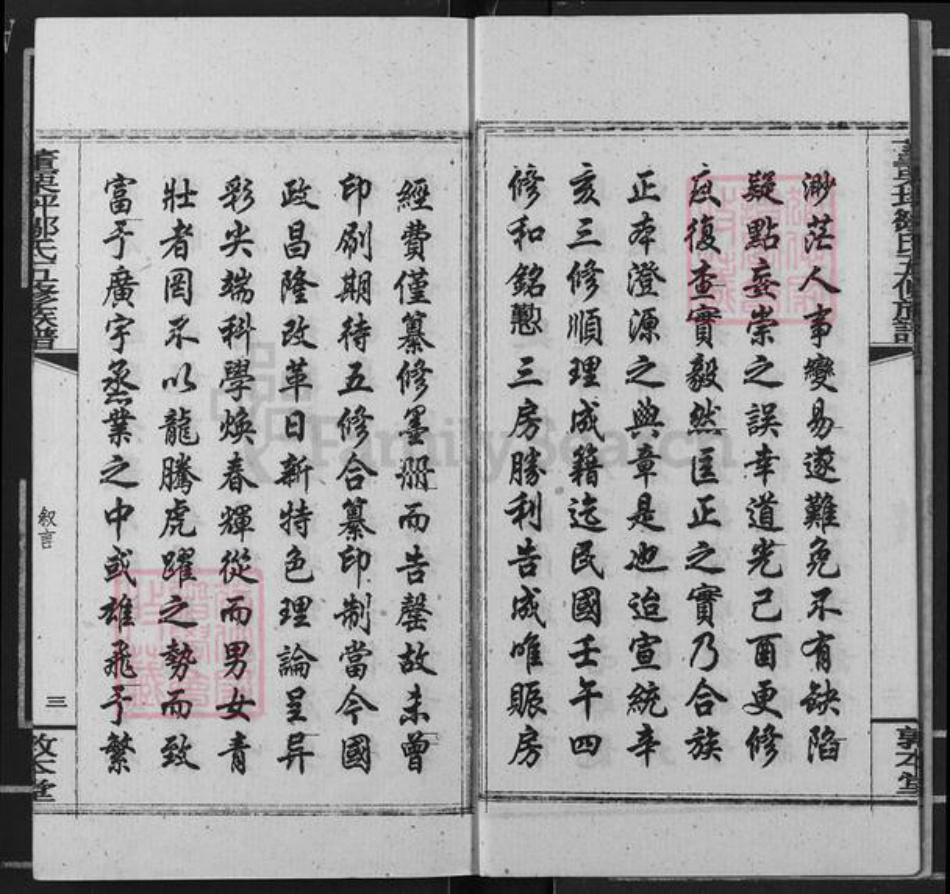 渺茫人事變易遂難免不有缺陷
疑點妄崇之誤幸道光己酉更修
度復查實毅然匡正之實乃合族
正本澄源之典章是也迨宣統辛
亥三修順理成籍迄民國壬午四
修和銘懃三房勝利告成唯賑房
經費僅纂修墨冊而告罄故未曾
印刷期待五修合纂印制當今國
政昌隆改革日新特色理論呈异
彩尖端科學煥春輝從而男女青
壯者罔不以龍騰虎躍之勢而致
富于廣宇烝業之中或雄飛于繁
叙言
三
鄒氏五修族譜
FamilySearch